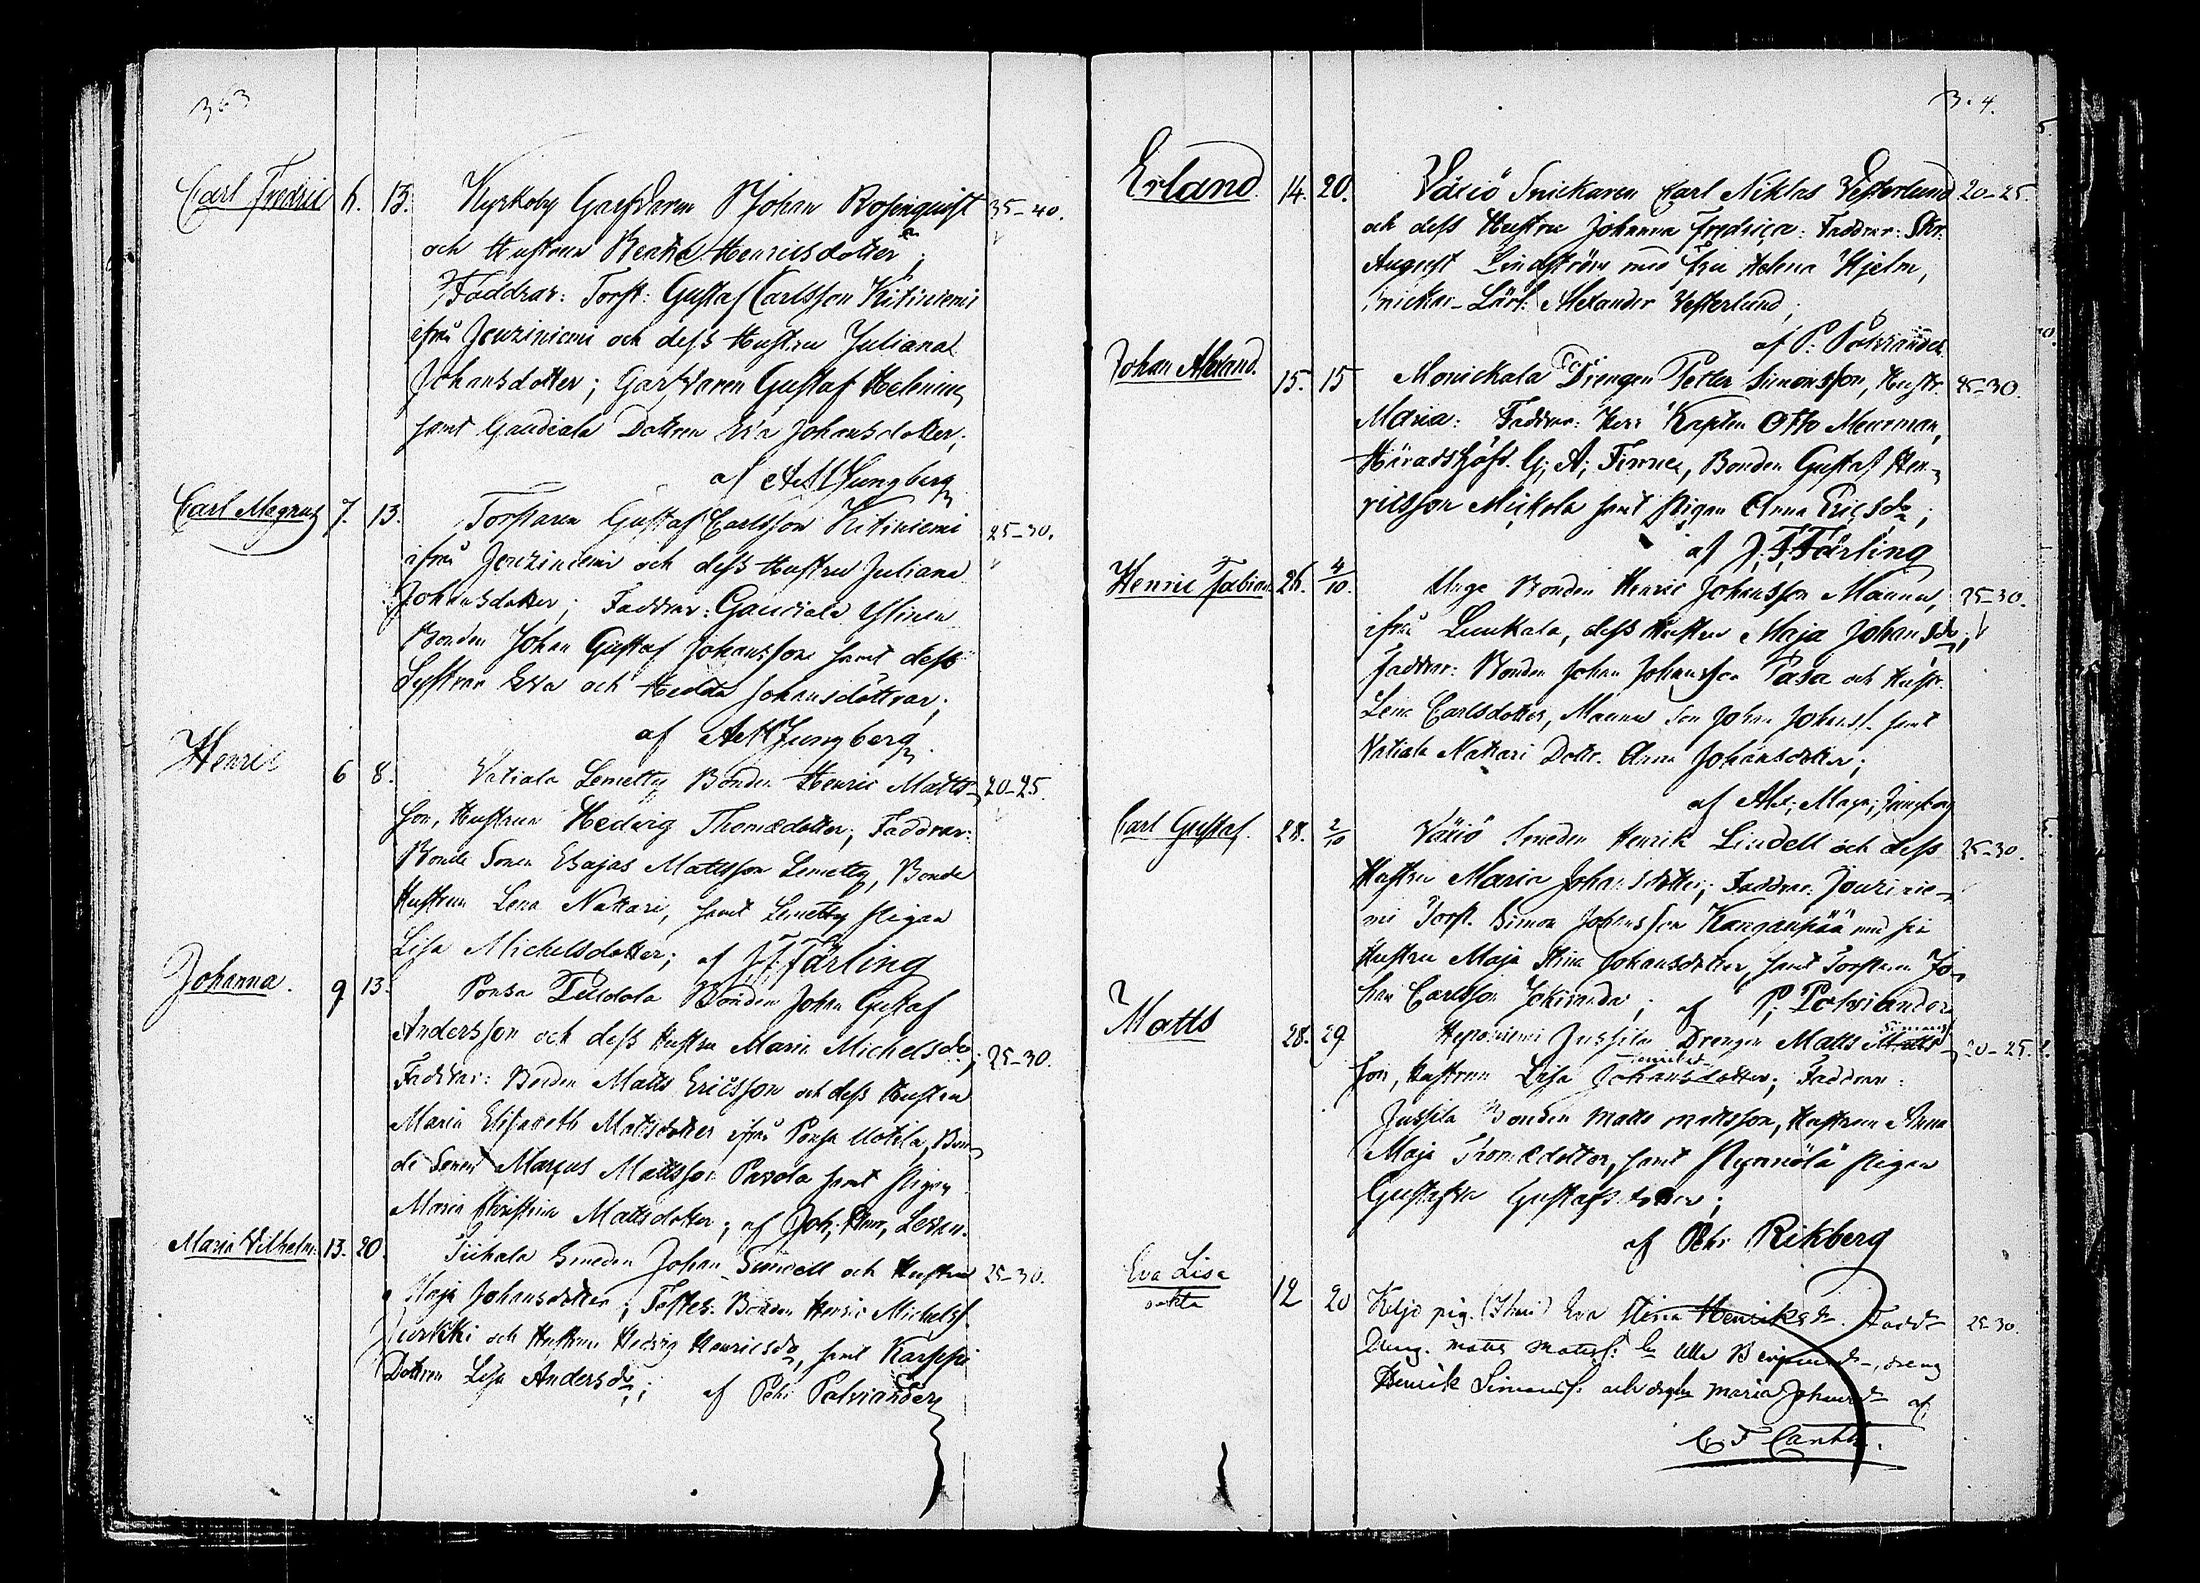 363
Carl Fredric 6. 13. Kyrkoby Garfvaren Johan Rosenquist 35-40.
och Hustrun Beata Henricsdotter;
Faddrar: Torp: Gustaf Carlsson Kitiniemi
ifrån Jouziniemi och dess Hustru Juliana
Johansdotter; Garfvaren Gustaf Helenius
samt Gaudiala Dottren Eva Johansdotter;
af A. M. Ljungberg
Carl Magnus 7. 13. Torparen Gustaf Carlsson Kitiniemi 25-30.
ifrån Jouziniemi och dess Hustru Juliana
Johansdotter; Faddrar: Gaudiala Ylinen
Bonden Johan Gustaf Johansson samt dess
Systrar Eva och Hedda Johansdöttrar;
af A. M. Ljungberg
Henric 6 8. Vatiala Lemetty Bonden Henric Matts- 20-25.
son, Hustrun Hedvig Thomædotter; Faddrar:
Bonde Sonen Esajas Mattsson Lemetty, Bonde
Hustrun Lena Nattari, samt Lemetty Pigan
Lisa Michelsdotter; af J. F. Färling
Johanna. 9 13. Ponsa Bonden Johan Gustaf
Andersson och dess Hustru Maria Michelsdr; 25-30.
Faddrar: Bonden Matts Ericsson och dess Hustru
Maria Elisabeth Mattsdotter ifrån Ponsa Uotila, Bon-
de Sonen Marcus Mattsson Pavola samt Pigan
Maria Christina Mattsdotter; af Joh: Henr. Leven.
Maria Vilhelm: 13. 20. Tiihala Smeden Johan Sundell och Hustrun 25-30.
Maja Johansdotter; Testes: Bonden Henric Michelss.
Jurkki och Hustrun Hedvig Henricsdr, samt Karppi
Dottren Lisa Andersdr; af Pehr Palviander
3.4.
Erland. 14. 20. Växiö Snickaren Carl Niklas Vesterlund 20-25.
och dess Hustru Johanna Fredrica: Faddrar: Skr:
August Lindström med fru Helena Hjelm,
Snickar-Lärl: Alexander Vesterlund;
af P: Palviander
Johan Alexand. 15. 15 Monickala Drengen Petter Simonsson, Hustr. 25-30.
Maria: Faddrar: Herr Kapten Otto Meurman,
Häradshöfd. G; A; Ferner, Bonden Gustaf Hen-
ricsson Mickola samt Pigan Anna Ericsdr;
af J. F. Färling
Henric Fabian 26. 4/10. Bonden Henric Johansson Mannu, 25-30.
ifrån Liuckala, dess Hustru Maja Johansdr;
Faddrar: Bonden Johan Johansson Pasa och Hustr.
Lena Carlsdotter, Mannu Son Johan Johanss. samt
Vatiala Nattari Dottr. Anna Johansdotter;
af Alex. Magn: Ljungberg
Carl Gustaf. 28. 2/10 Växiö Smeden Henrik Lindell och dess 25-30.
Hustru Maria Johansdotter; Faddrar: Jouzinie-
mi Torp. Simon Johansson Kangaspää med sin
Hustru Maja Stina Johansdotter, samt Torparen Jo-
han Carlsson Jokiranda; af P; Palviander
Matts 28. 29 Heponiemi Jussila Drengen Matts Matts- Simons 20-25.
son, Hustrun Lisa Johansdotter; Faddrar:
Jussila Bonden Matts Mattsson, Hustrun Anna
Maja Thomædotter, samt Nynnölä Pigan
Gustafva Gustafsdotter;
af Pehr Rikberg
Eva Lisa 12 20 Keljo pig. Eva Stina Henriksdr. Faddr 25-30.
oäkta Dreng. Matts Matss: Ulla dreng
Henrik Simonss: och Maria Johansdr af
C F Canth.